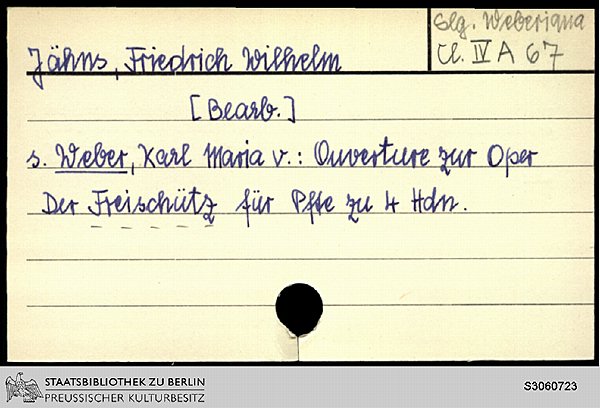 Slg. Weberiana
Cl. IV A 67
Jähns, Friedrich Wilhelm
[Bearb.]
s. Weber, Karl Maria v.: Ouverture zur Oper
Der Freischütz für Pfte zu 4 Hdn.
STAATSBIBLIOTHEK ZU BERLIN
PREUSSISCHER KULTURBESITZ
S3060723